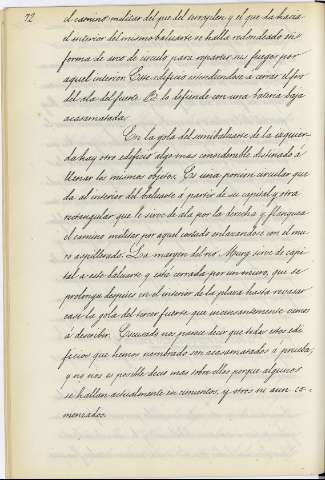 72
el camino militar del pie del terraplen y el que da hacia
el interior del mismo baluarte se halla redondeado en
forma de arco de circulo para repartir sus fuegos por
aquel interior. Este edificio estendiendose a cerrar el foso
del ala del fuerte lo defiende con una bateria baja
acasamatada.
En la gola del semibaluarte de la izquier-
da hay otro edificio algo mas considerable destinado á
llenar los mismos objetos. Es una porcion circular que
da al interior del baluarte á partir de su capital y otra
rectangular que le sirve de ala por la derecha y flanquea
el camino militar por aquel costado enlazandose con el mu-
ro aspillerado. La margen del rio Murg sirve de capi-
tal a este baluarte y está cerrada por un muro, que se
prolonga despues en el interior de la plaza hasta rebasar
casi la gola del tercer fuerte que incesantemente vamos
á describir. Escusado nos parece decir que todos estos edi-
ficios que hemos nombrado son acasamatados á prueba,
y no nos es posible decir mas sobre ellos porque algunos
se hallan actualmente en cimientos, y otros ni aun co-
menzados.